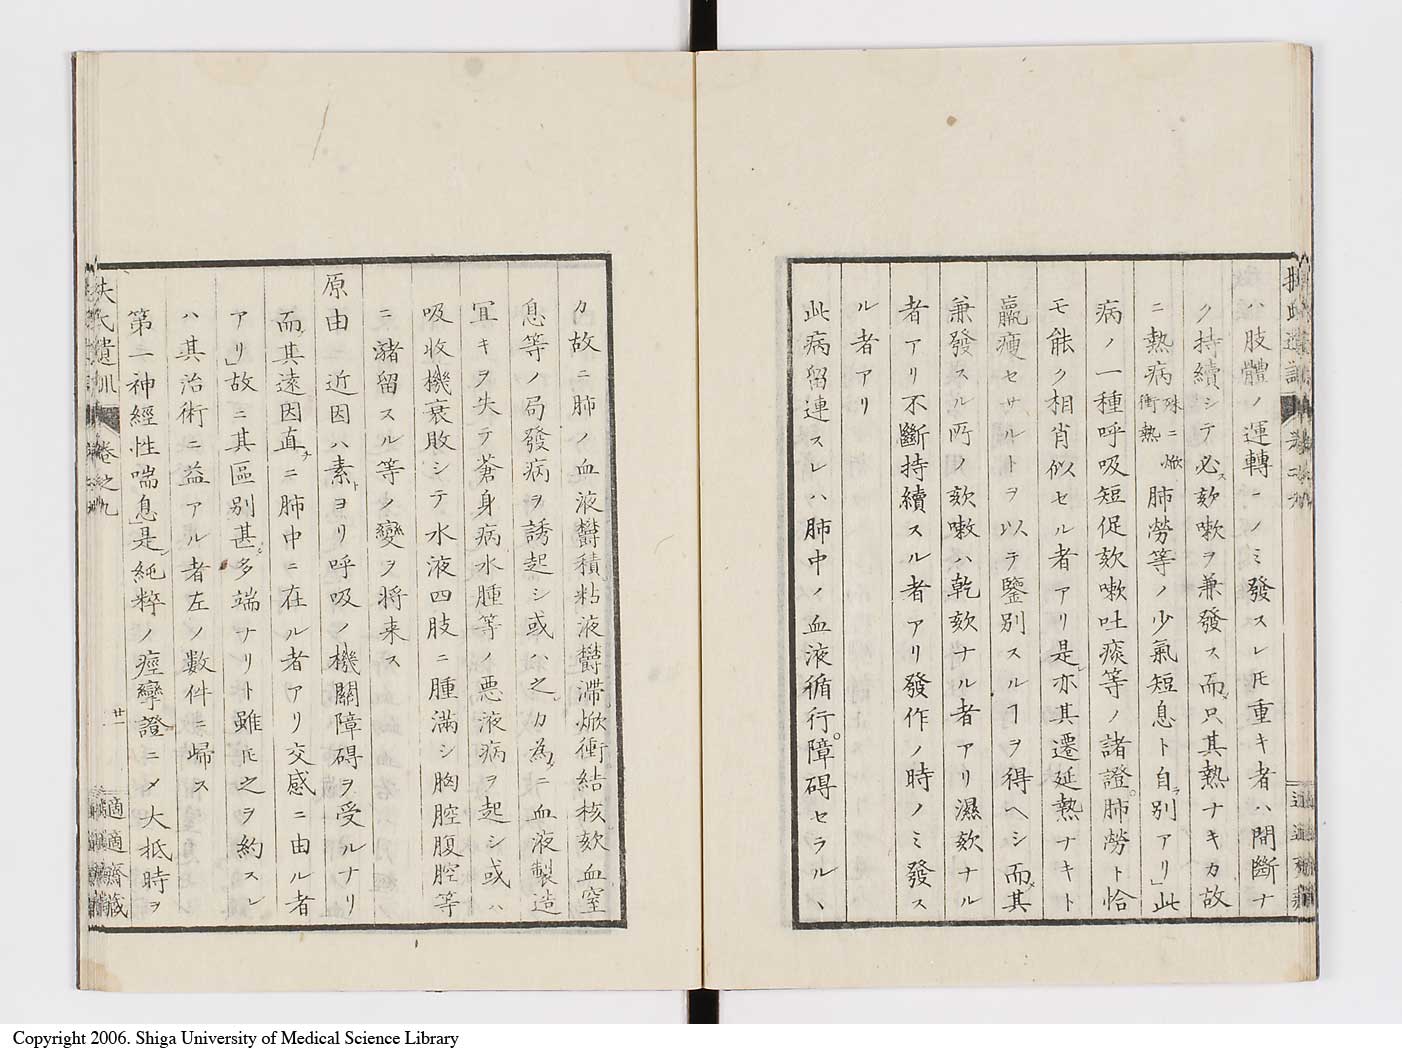 ハ肢體ノ運轉ニノミ發スレ𪜈重キ者ハ間斷ナ
ク持續シテ必ス欬嗽ヲ兼發ス而メ只其熱ナキカ故
ニ熱病殊ニ焮衝熱肺勞等ノ少氣短息ト自ラ別アリ」此
病ノ一種呼吸短促欬嗽吐痰等ノ諸證。肺勞ト恰
モ能ク相肖似セル者アリ是レ亦其遷延熱ナキト
羸瘦セサルトヲ以テ鑒別スルヿヲ得ヘシ而メ其
兼發スル所ノ欬嗽ハ乾欬ナル者アリ濕欬ナル
者アリ不斷持續スル者アリ發作ノ時ノミ發ス
ル者アリ
此病留連スレハ肺中ノ血液循行。障碍セラルヽ
ク故ニ肺ノ血液欝積粘液欝滯焮衝結核欬血窒
息等ノ局發病ヲ誘起シ或ハ之レカ為メニ血液製造
冝キヲ失テ蒼身病水腫等ノ惡液病ヲ起シ或ハ
吸收機衰敗シテ水液四肢ニ腫滿シ胸腔腹腔等
ニ瀦留スル等ノ變ヲ将来ス
原由 近因ハ素トヨリ呼吸ノ機關障碍ヲ受ルナリ
而メ其遠因直チニ肺中ニ在ル者アリ交感ニ由ル者
アリ」故ニ其區別甚タ多端ナリト雖𪜈之ヲ約スレ
ハ其治術ニ益アル者左ノ數件ニ歸ス
第一神經性喘息」是レ純粹ノ痙攣證ニメ大抵時ヲ
扶氏遺訓 卷之九
廿一
適適齋藏